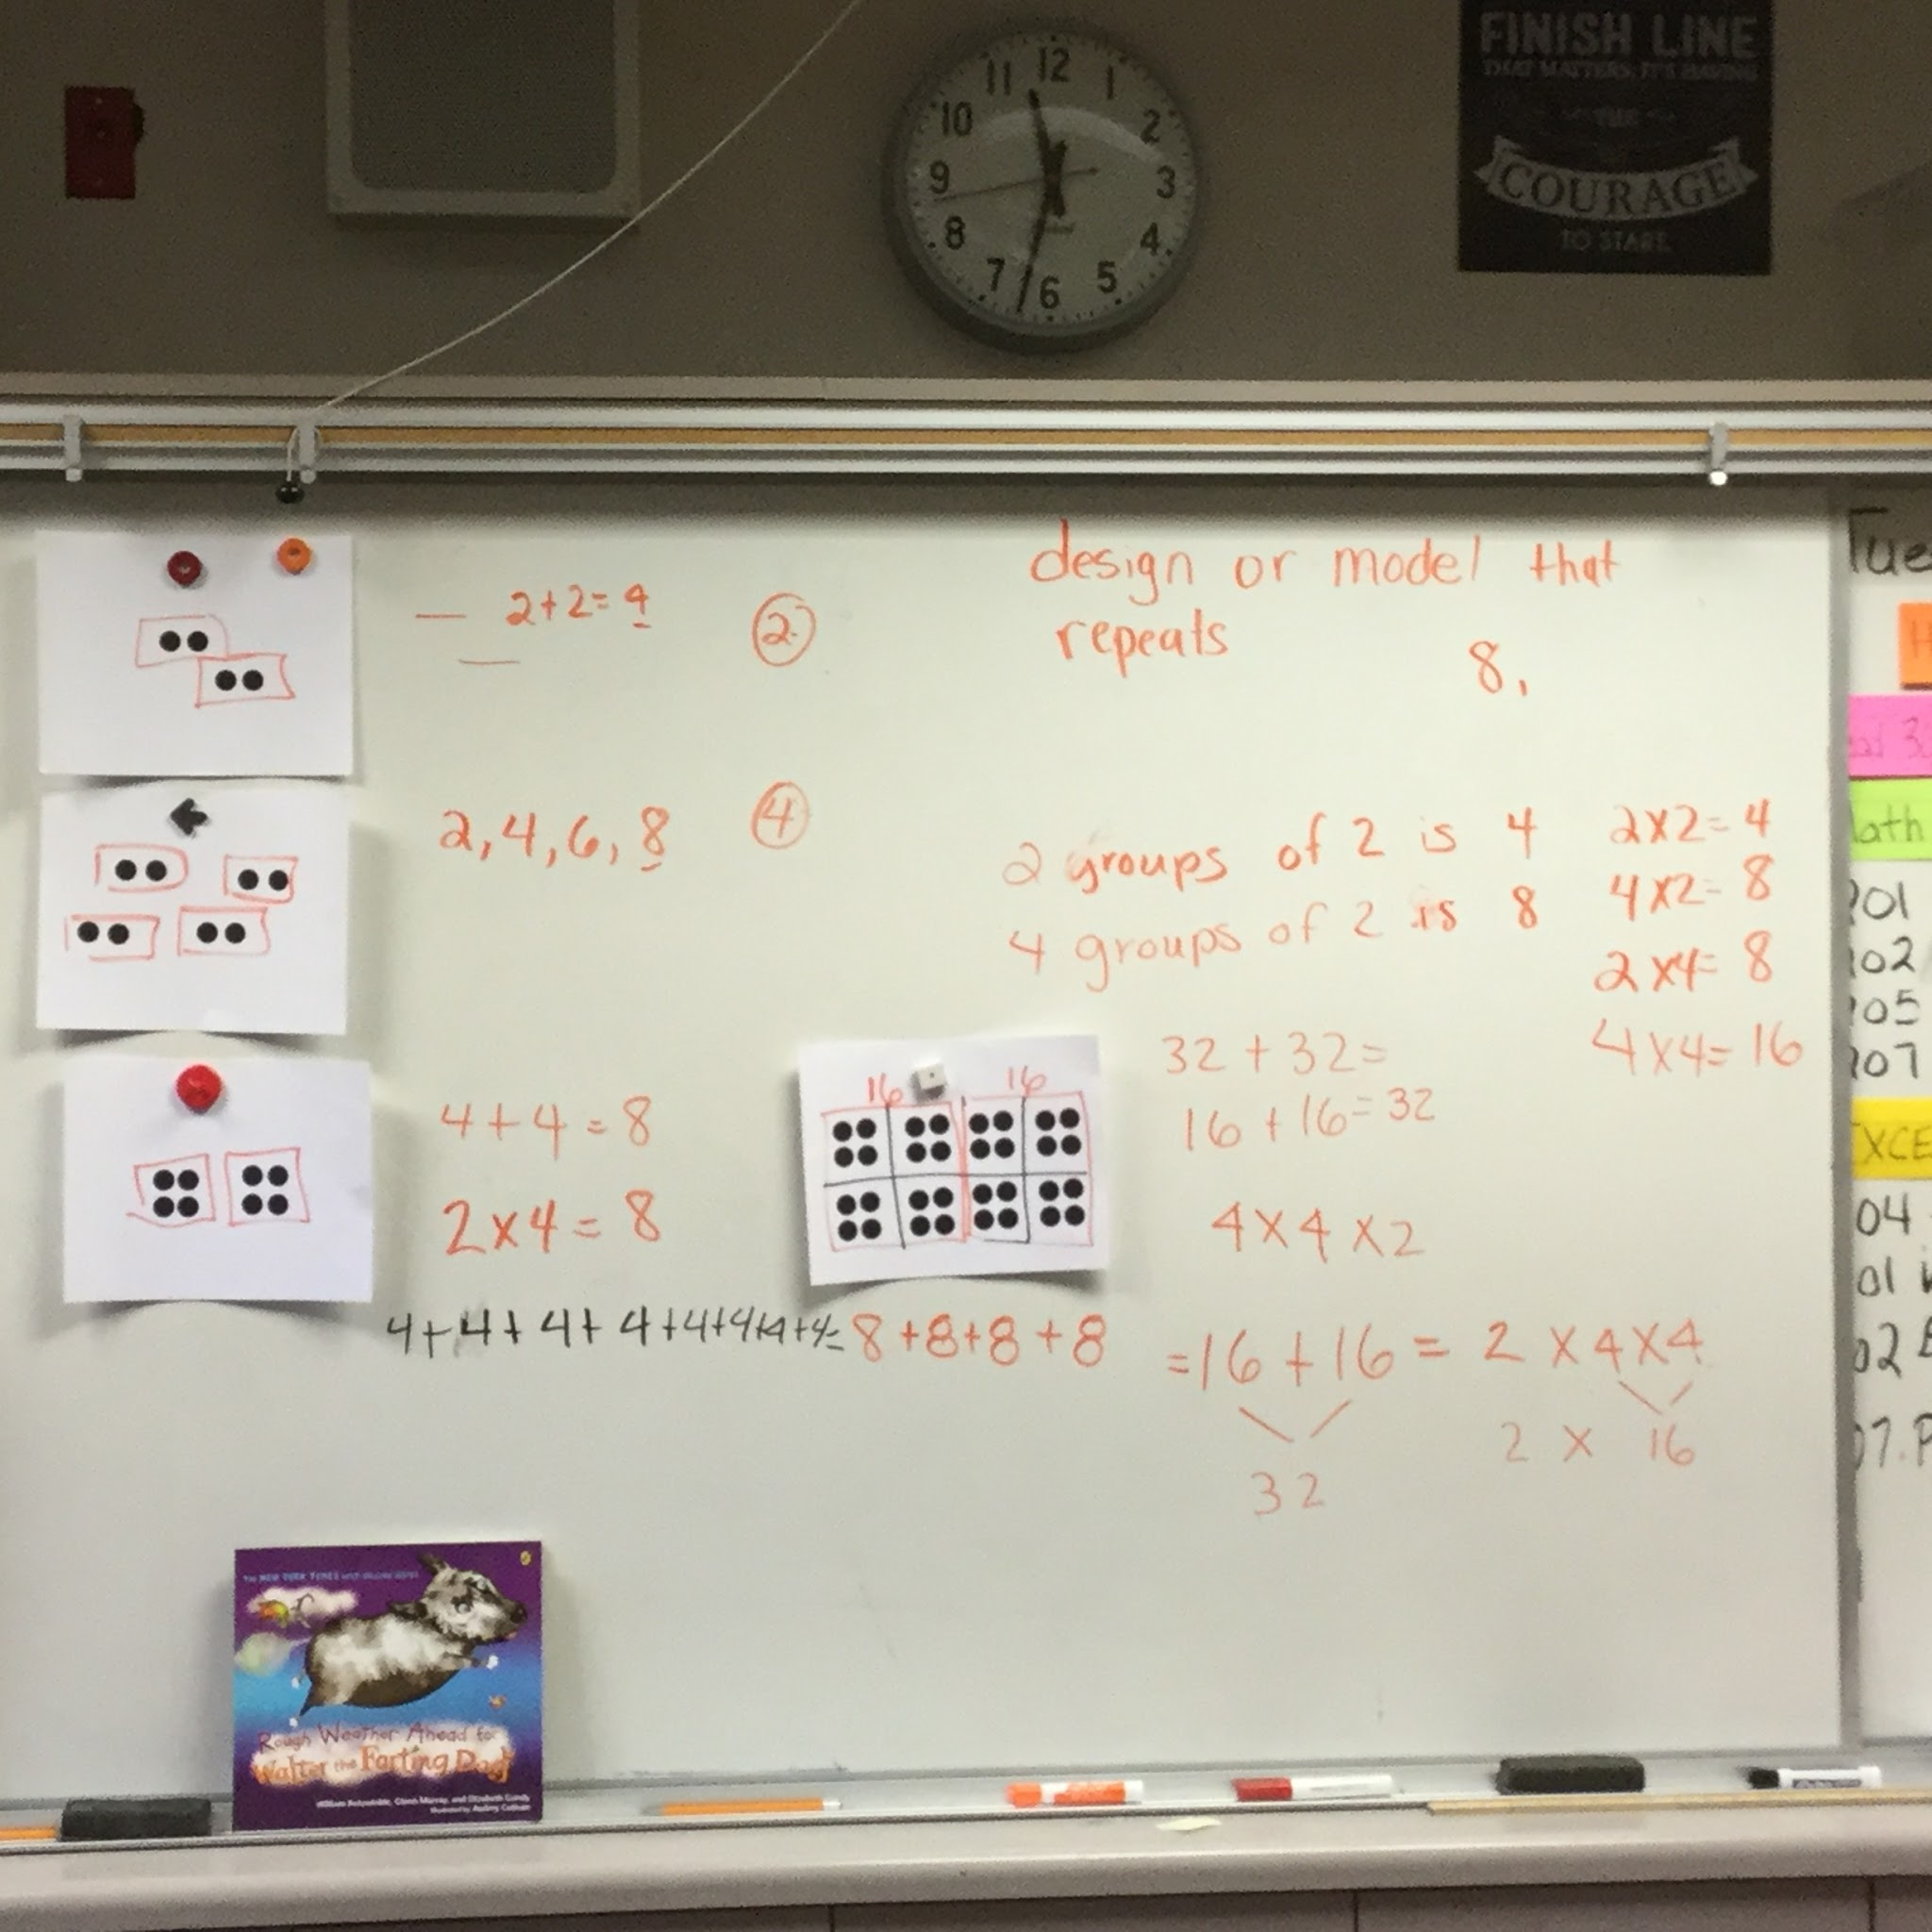 FINISH LINE
THAT MATTERS: IT'S HAVING
THE
COURAGE
TO START.
11 12 1
10 2
9 3
8 4
7 6 5
design or model that
repeats
8,
2+2=4
2
2, 4, 6, 8
4
2 groups of 2 is 4
4 groups of 2 is 8
2x2=4
4x2=8
2x4=8
4x4=16
4+4=8
2x4=8
16 16
32+32=
16+16=32
4x4x2
4+4+4+4+4+4+4+4=8+8+8+8
=16+16=2x4x4
32
2 x 16
Tue
H
ad 3
ath
01
02
05
07
XCE
04
01
02
07. P
THE NEW YORK TIMES
Rough Weather Ahead for
Walter the Farting Dog
William Kotzwinkle, Glenn Murray, and Elizabeth Gundy
Illustrated by Audrey Colman